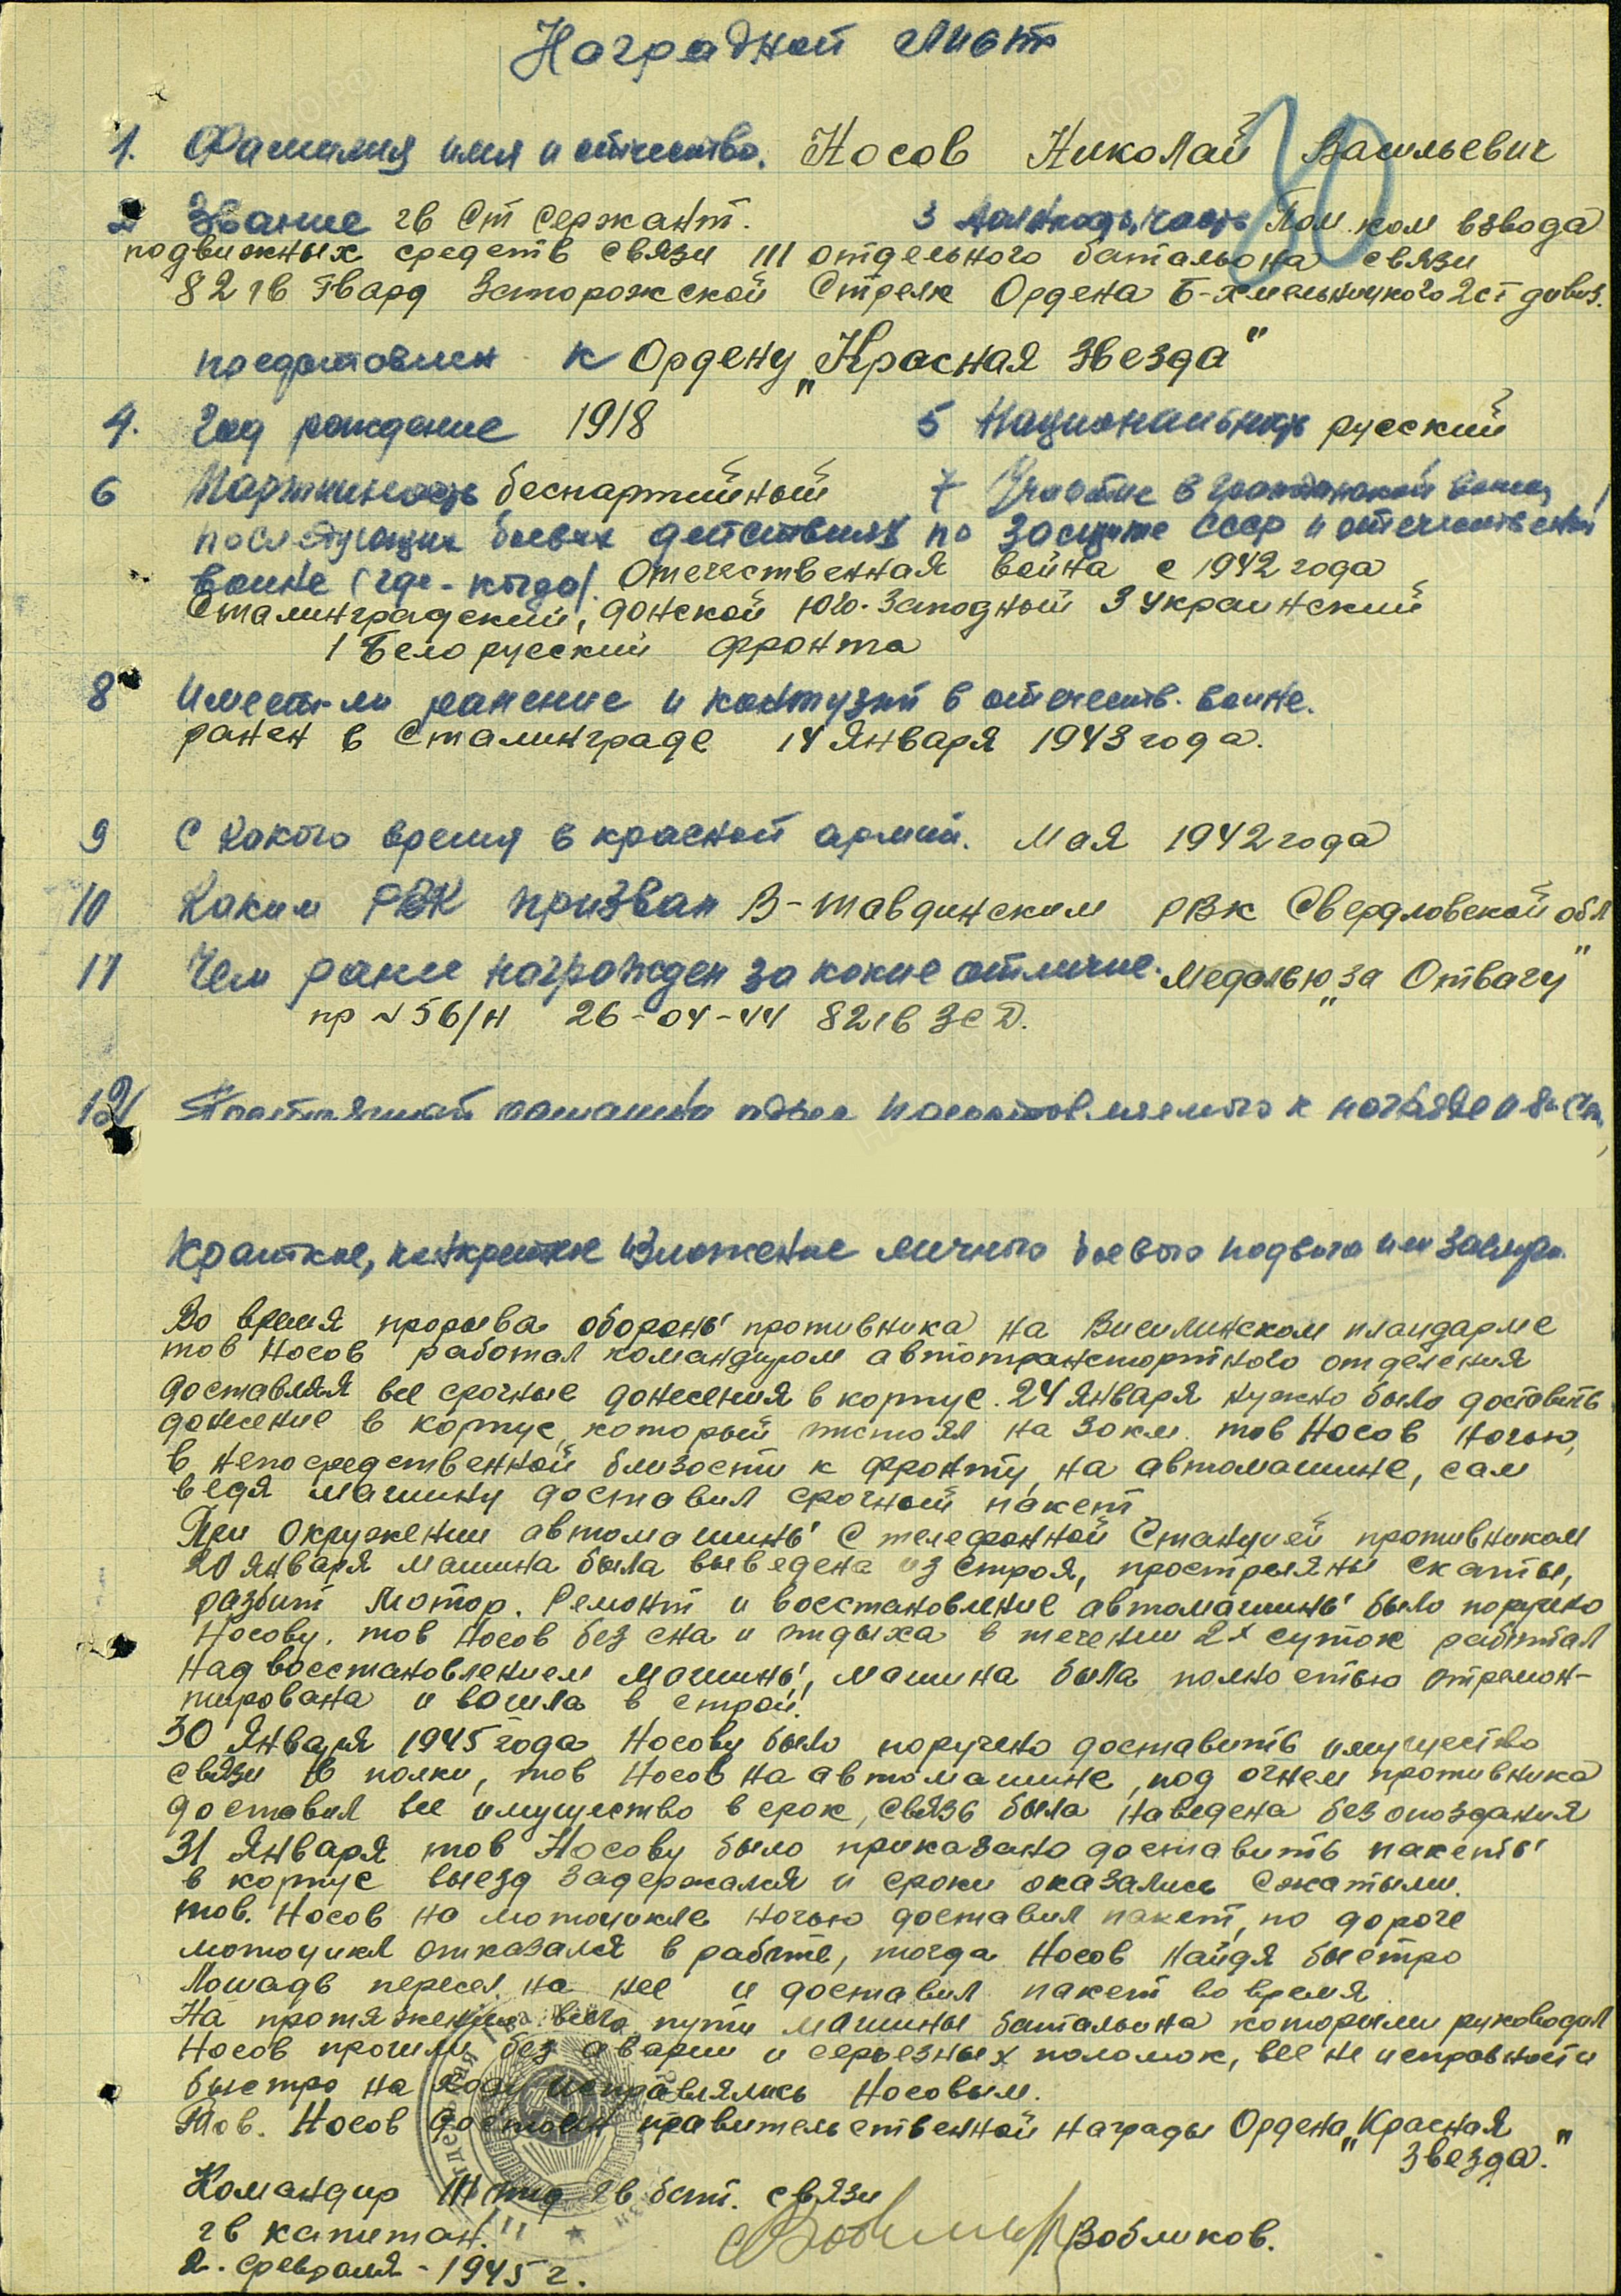 Наградной лист
80
1. Фамилия имя и отчество. Носов Николай Васильевич
2 Звание гв Ст Сержант. 3 должность, часть Пом. ком взвода
подвижных средств связи 111 отдельного батальона связи
82 гв Гвард Запорожской Стрелк Ордена Б-Хмельницкого 2 ст дивиз.
представлен к Ордену „Красная звезда"
4. Год рождение 1918 5 Национальность русский
6 Партийность беспартийный 7 Участие в гражданской войне,
последующих боевых действиях по защите СССР и отечественной
войне (где-когда). Отечественная война с 1942 года
Сталинградский, Донской Юго-Западный 3 Украинский
1 Белорусский фронта
8 Имеет-ли ранение и контузий в отечеств. войне.
ранен в Сталинграде 14 Января 1943 года.
9 С какого время в красной армий. Мая 1942 года
10 Каким РВК призван В-тавдинским РВК Свердловской обл
11 Чем ранее награжден за какие отличие. Медалью „за Отвагу"
пр № 56/н 26-04-44 82 гв ЗСД.
12 Постоянный домашний адрес представляемого к награде и
Краткое, конкретное изложение личного боевого подвига или заслуг.
Во время прорыва обороны противника на Висилинском плацдарме
тов Носов работал командиром автотранспортного отделения
доставляя все срочные донесения в корпус. 24 Января нужно было доставить
донесение в корпус, который отстоял на 30 км. тов Носов ночью,
в непосредственной близости к фронту, на автомашине, сам
ведя машину доставил срочный пакет
При окружении автомашины с телефонной Станцией противником
20 Января машина была выведена из строя, прострелены скаты,
разбит мотор. Ремонт и восстановление автомашины было поручено
Носову. тов Носов без сна и отдыха в течении 2х суток работал
над восстановлением машины, машина была полностью отремон-
тирована и вошла в строй.
30 Января 1945 года Носову было поручено доставить имущество
связи в полки, тов Носов на автомашине, под огнем противника
доставил все имущество в срок, связь была наведена без опоздания
31 Января тов Носову было приказано доставить пакеты
в корпус выезд задержался и сроки оказались сжатыми.
тов. Носов на мотоцикле ночью доставил пакет, по дороге
мотоцикл отказался в работе, тогда Носов найдя быстро
лошадь пересел на нее и доставил пакет во время
На протяжении всего пути машины батальона которыми руководил
Носов прошли без аварии и серьезных поломок, все не исправности
быстро на ходу исправлялись Носовым.
Тов. Носов достоин правительственной награды Ордена „Красная
звезда."
Командир 111 отд гв бат. связи
гв капитан. Вобликов.
2. февраля - 1945 г.